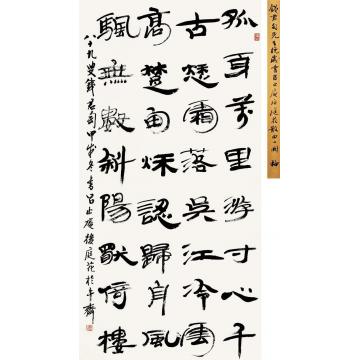 孤身萬里游寸心千
古愁霜落吳江冷雲
高楚甸秋認歸舟風
颿無數斜陽獨倚樓
八十九叟錢君匋甲戌冬書呂止庵後庭花於午齋
錢君匋先生書呂止庵後庭花散曲